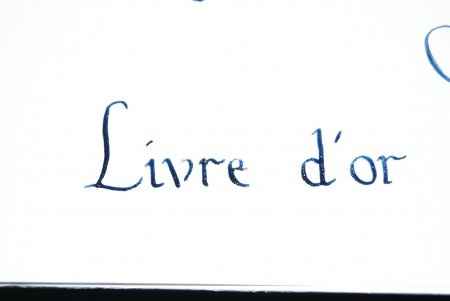 Livre d'or